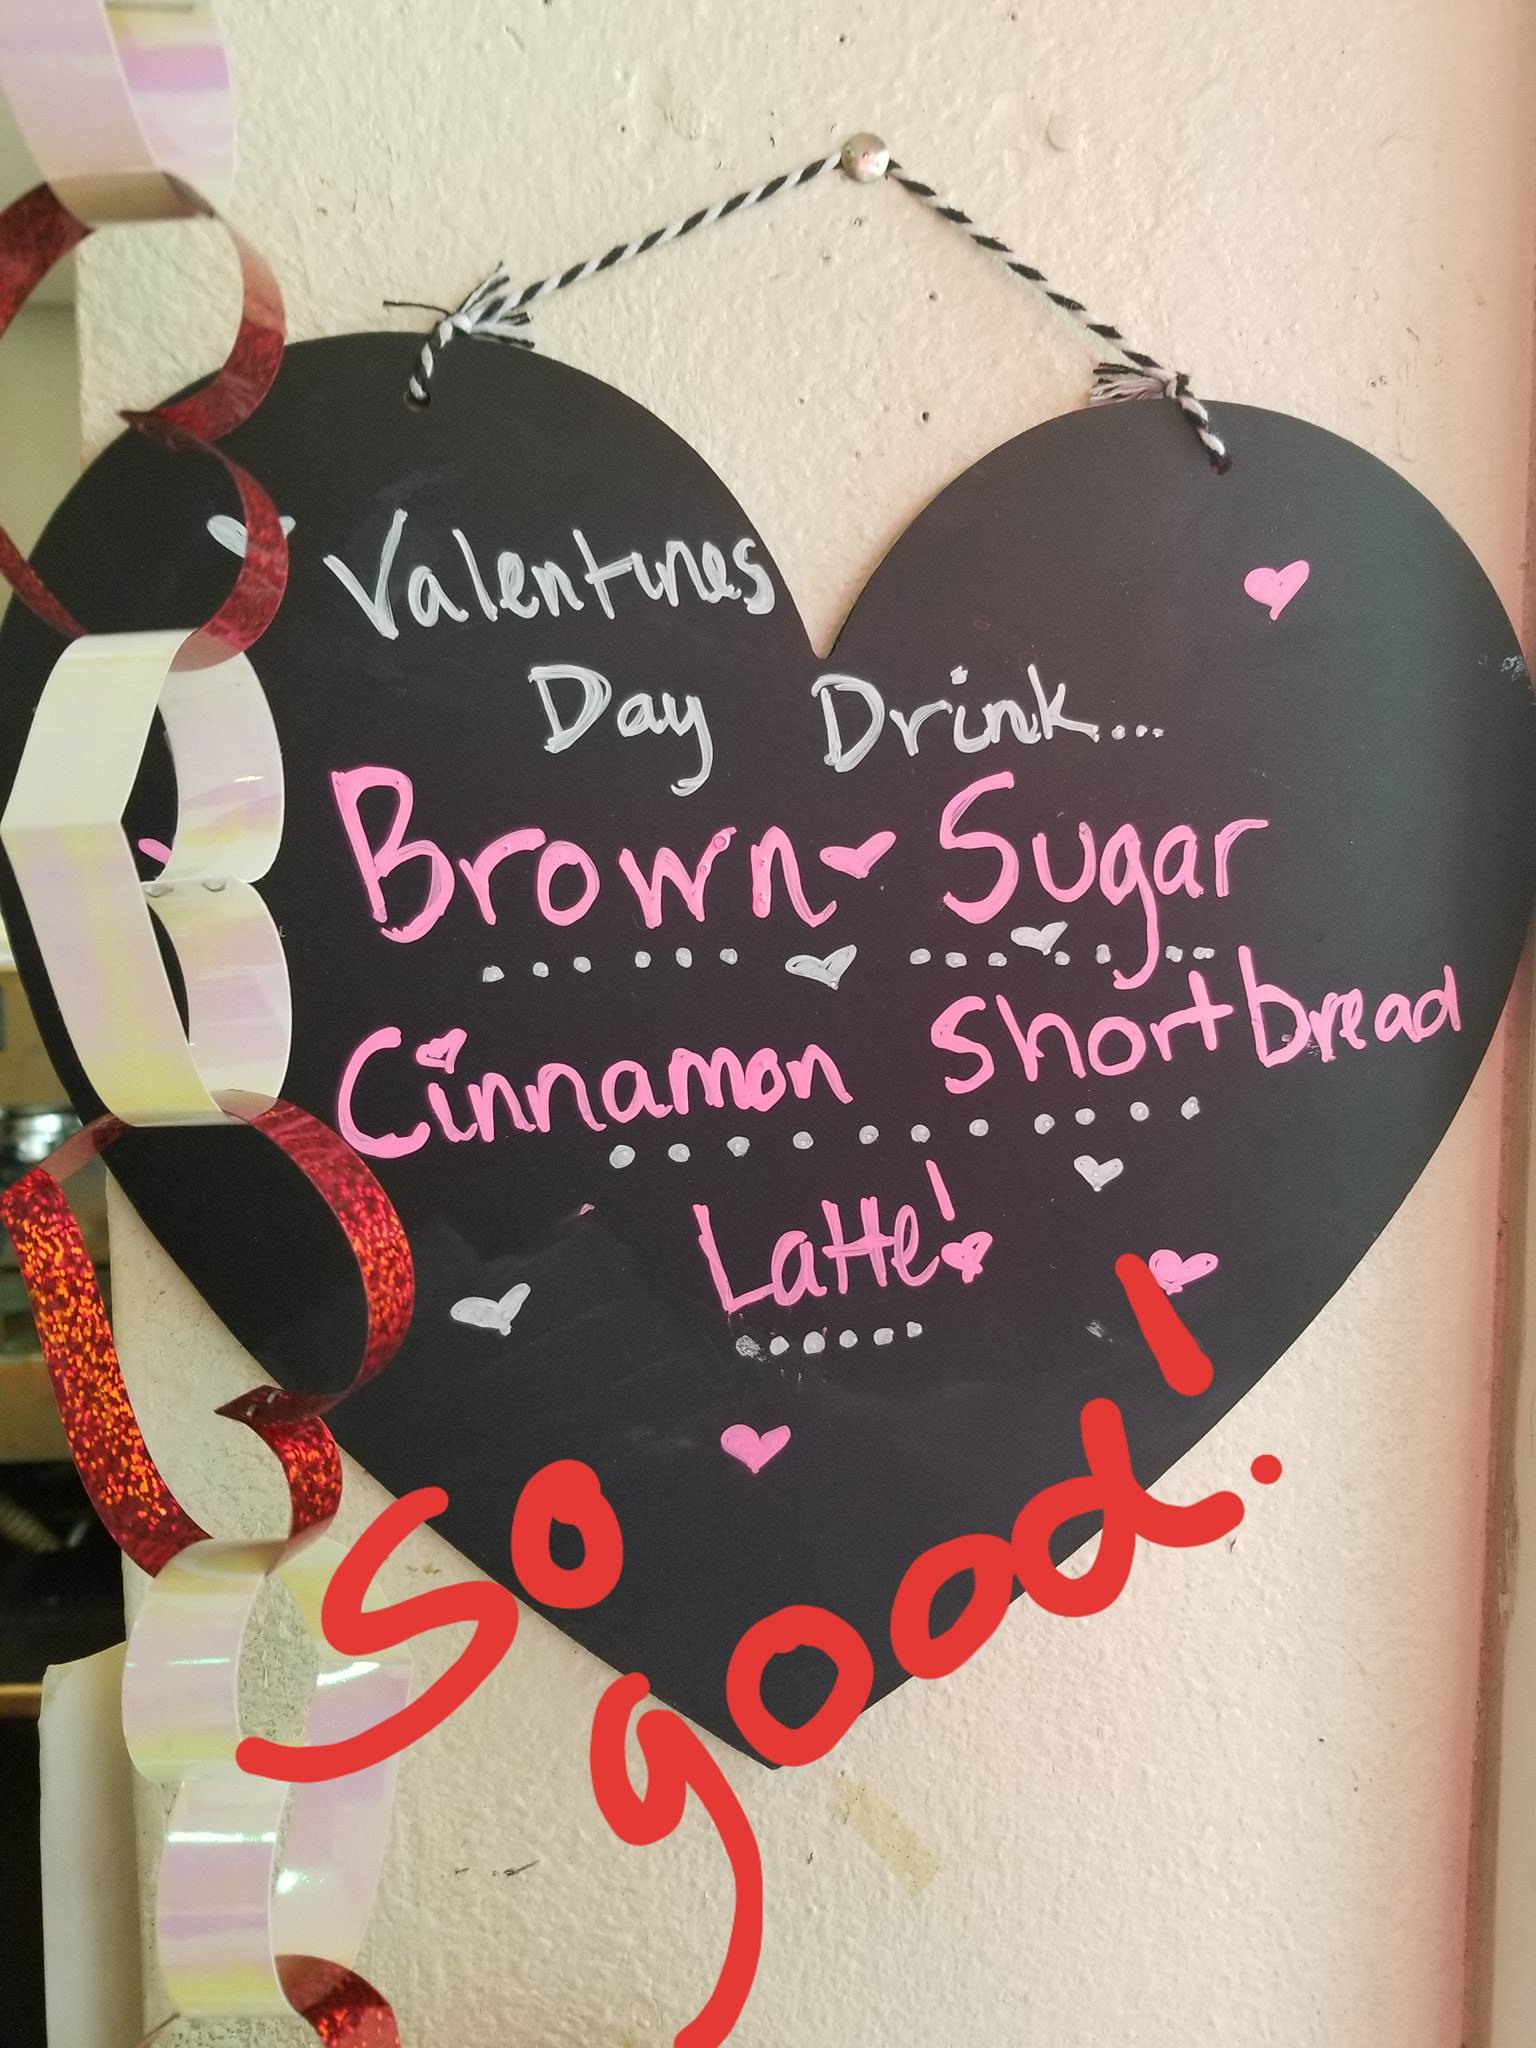 Valentines
Day Drink...
Brown Sugar
Cinnamon Shortbread
Latte!
So
good!